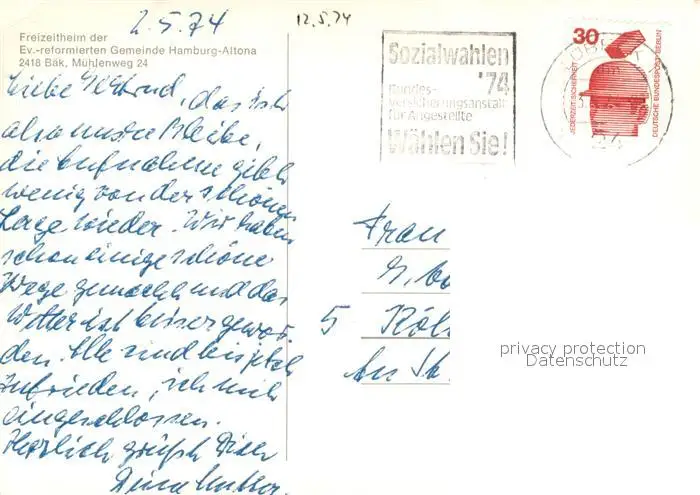 2.5.74
12.5.74
Freizeitheim der
Ev.-reformierten Gemeinde Hamburg-Altona
2418 Bäk, Mühlenweg 24
Liebe Gertrud, das ist
also unsre Bleibe,
die Aufnahme gibt
wenig von der schönen
Lage wieder. Wir haben
schon einige schöne
Wege gemacht und das
Wetter ist besser gewor-
den. Alle sind bis jetzt
zufrieden, ich mit
eingeschlossen.
Herzlich grüßt Dich
Deine Mutter.
Sozialwahlen
'74
Bundes-
versicherungsanstalt
für Angestellte
Wählen Sie!
30
JEDERZEIT SICHERHEIT
DEUTSCHE BUNDESPOST BERLIN
24
Frau
G.
5 Köl
An
privacy protection
Datenschutz